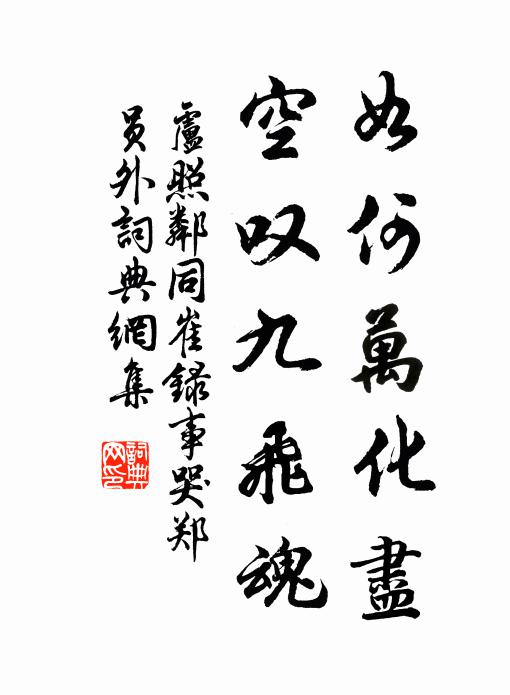 如何萬化盡
空叹九飛魂
盧照鄰同崔録事哭郑
员外詞典網集
詞典网印